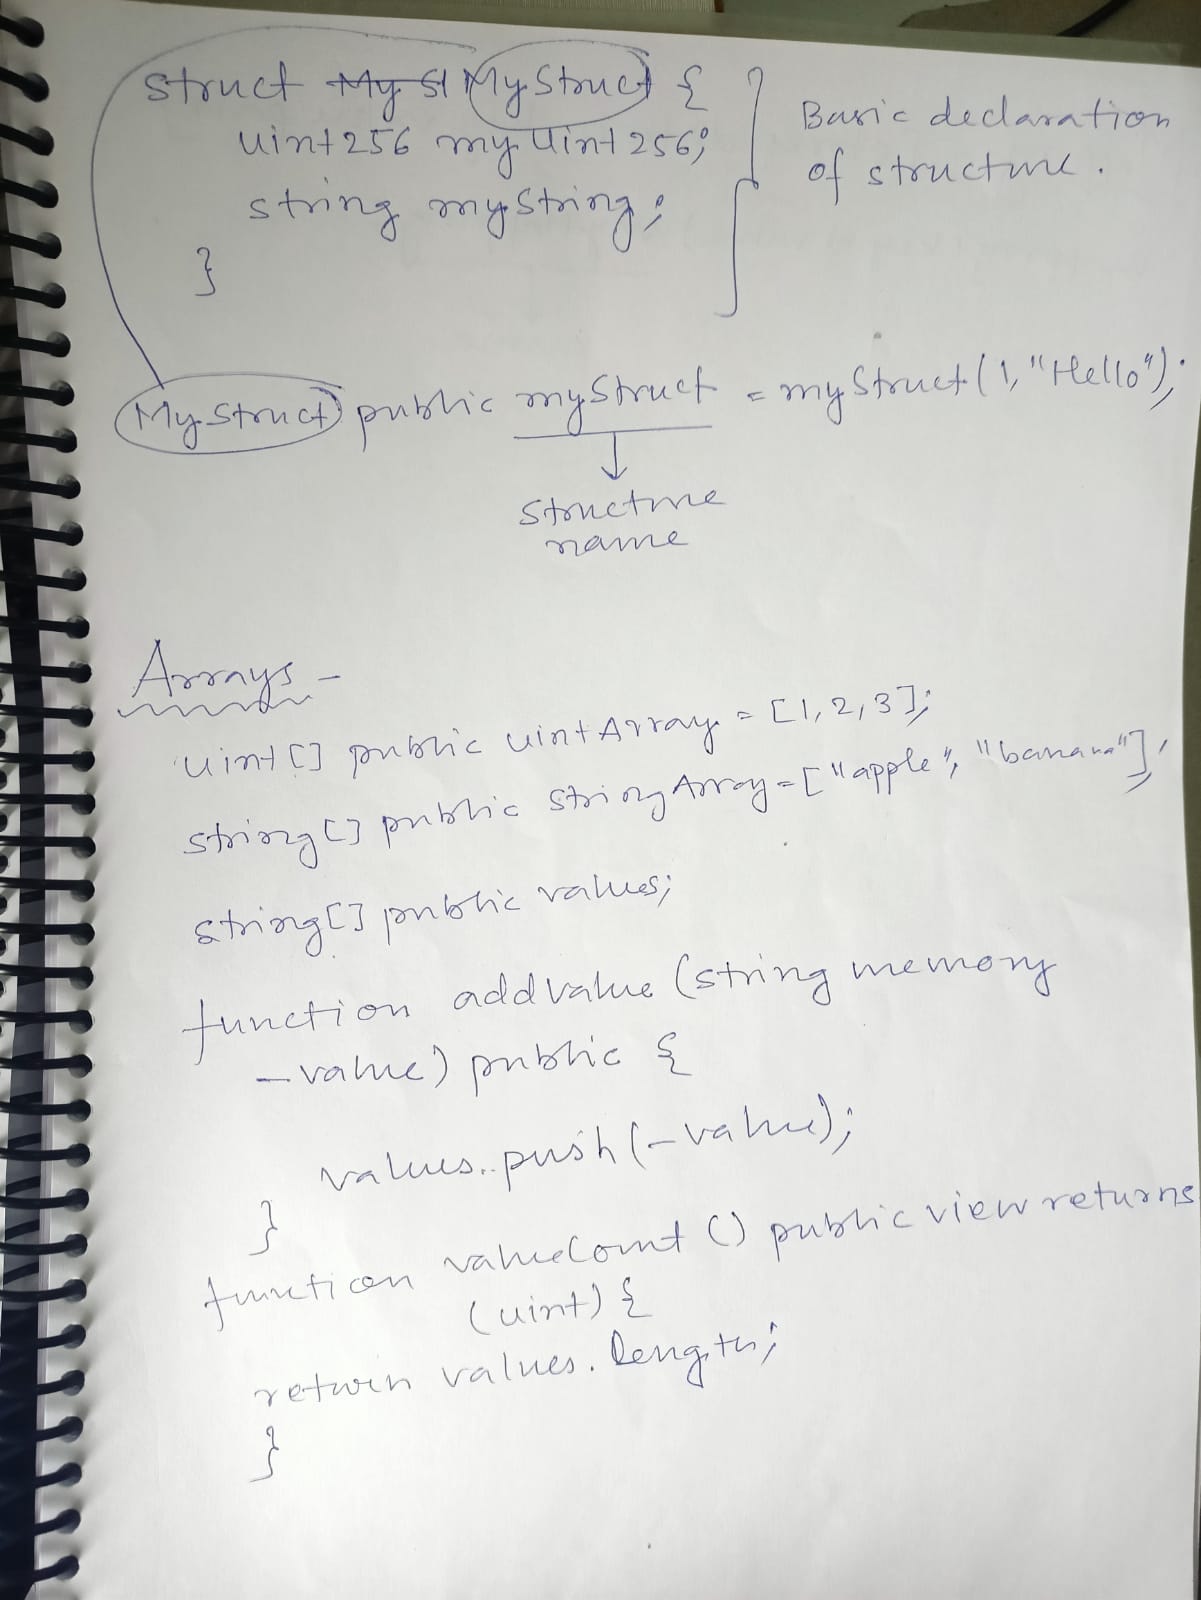 struct My St MyStruct {
uint256 myUint256;
string myString;
}
Basic declaration
of structure.
MyStruct public myStruct = myStruct(1,"Hello");
structure
name
Arrays -
uint[] public uintArray = [1,2,3];
string[] public stringArray=["apple", "banana"];
string[] public values;
function addvalue (string memory
_value) public {
values..push(_value);
}
function valueCount () public view returns
(uint) {
return values.length;
}